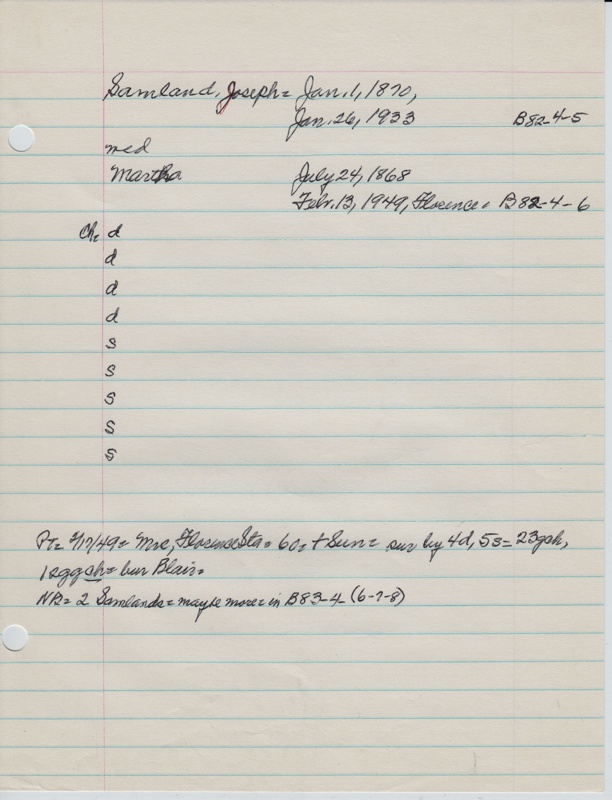 Samland, Joseph = Jan. 1, 1870,
Jan. 26, 1933 B82-4-5
med
Martha July 24, 1868
Febr. 13, 1949, Florence = B82-4-6
Ch= d
d
d
d
s
s
s
s
s
Pt= 2/17/49 = Mrs, Florence Sta = 60 = + Sun = sur by 4d, 5s = 23gch,
12ggch = bur Blair =
NB = 2 Samlands = maybe more = in B83-4-(6-7-8)